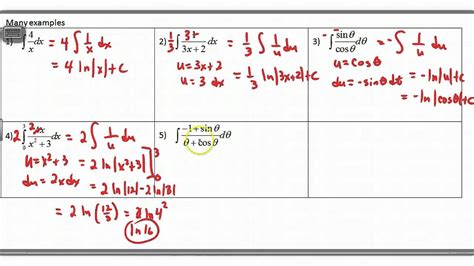 Many examples
1) ∫ 4/x dx = 4 ∫ 1/x dx
= 4 ln|x| + C
2) 1/3 ∫ 3/(3x+2) dx = 1/3 ∫ 1/u du
u = 3x+2
u = 3 dx
= 1/3 ln|3x+2| + C
3) ∫ sinθ/cosθ dθ = - ∫ 1/u du
u = cosθ
du = -sinθ dθ
= -ln|u| + C
= -ln|cosθ| + C
4) 2 ∫₀³ 2x/(x²+3) dx = 2 ∫ 1/u du
u = x²+3
du = 2x dx
= 2 ln|x²+3| ]₀³
= 2 ln|12| - 2 ln|3|
= 2 ln(12/3) = 2 ln 4²
ln 16
5) ∫ (-1+sinθ)/(θ+cosθ) dθ